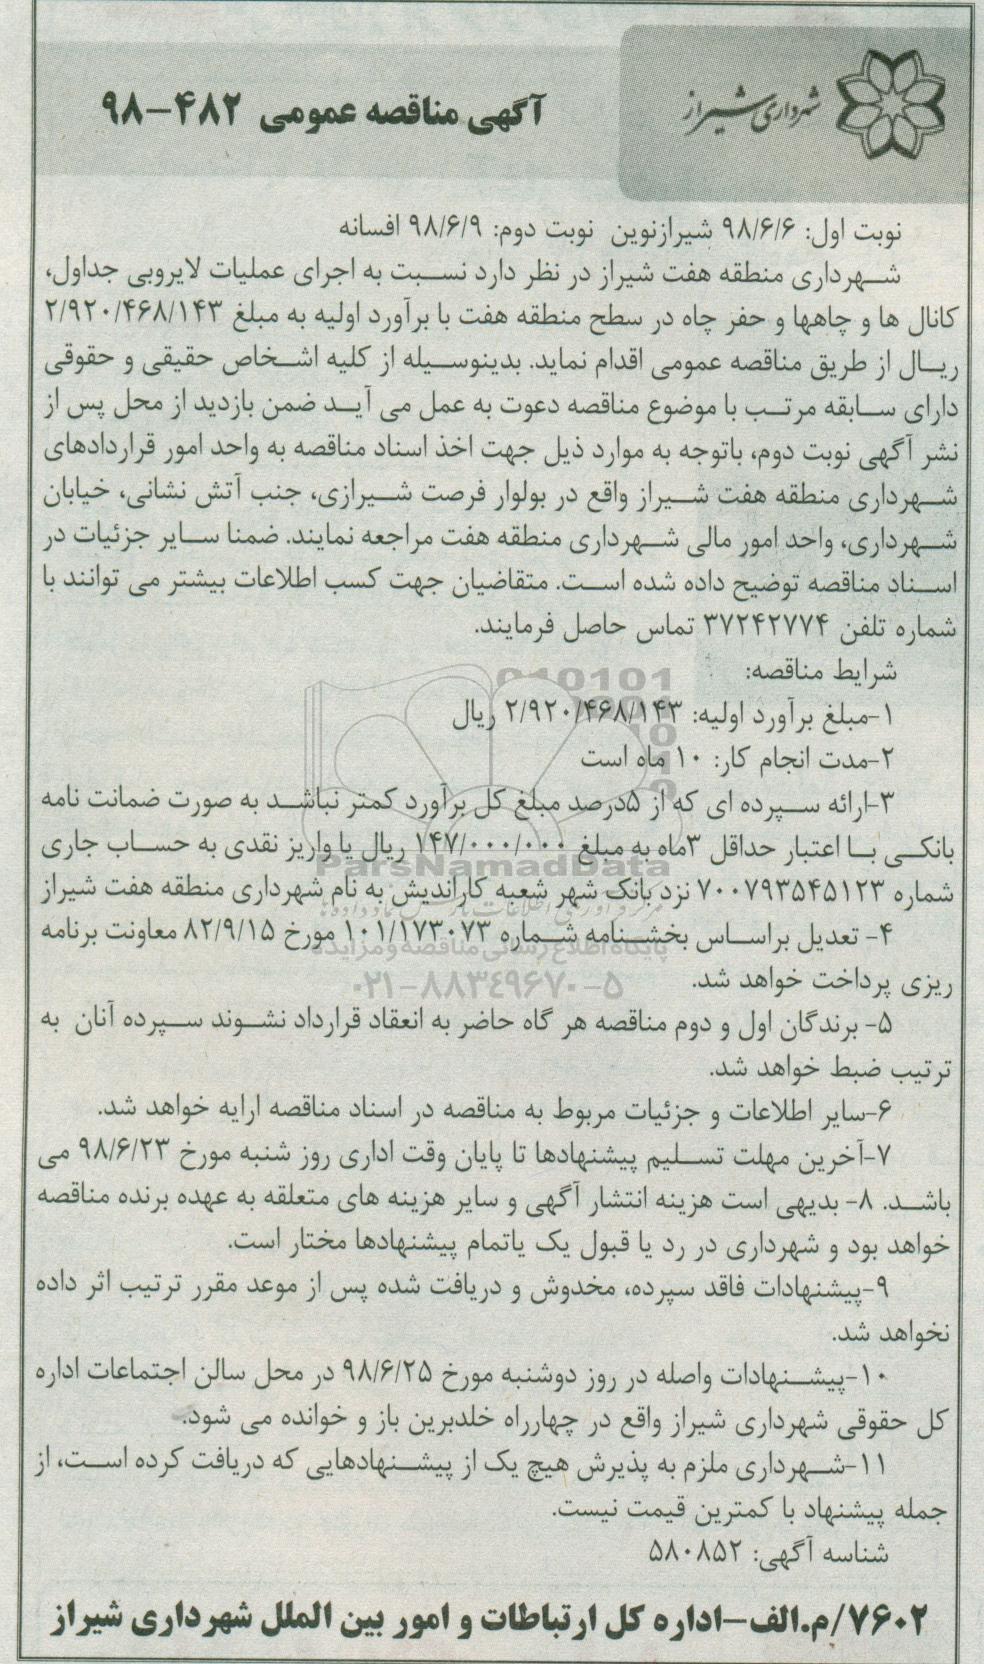 شهرداری شیراز
آگهی مناقصه عمومی ۴۸۲-۹۸
نوبت اول: ۹۸/۶/۶ شیرازنوین نوبت دوم: ۹۸/۶/۹ افسانه
شهرداری منطقه هفت شیراز در نظر دارد نسبت به اجرای عملیات لایروبی جداول،
کانال ها و چاهها و حفز چاه در سطح منطقه هفت با برآورد اولیه به مبلغ ۲/۹۲۰/۴۶۸/۱۴۳
ریال از طریق مناقصه عمومی اقدام نماید. بدینوسیله از کلیه اشخاص حقیقی و حقوقی
دارای سابقه مرتب با موضوع مناقصه دعوت به عمل می آید ضمن بازدید از محل پس از
نشر آگهی نوبت دوم، باتوجه به موارد ذیل جهت اخذ اسناد مناقصه به واحد امور قراردادهای
شهرداری منطقه هفت شیراز واقع در بولوار فرصت شیرازی، جنب آتش نشانی، خیابان
شهرداری، واحد امور مالی شهرداری منطقه هفت مراجعه نمایند. ضمنا سایر جزئیات در
اسناد مناقصه توضیح داده شده است. متقاضیان جهت کسب اطلاعات بیشتر می توانند با
شماره تلفن ۳۷۲۴۲۷۷۴ تماس حاصل فرمایند.
شرایط مناقصه:
۱-مبلغ برآورد اولیه: ۲/۹۲۰/۴۶۸/۱۴۳ ریال
۲-مدت انجام کار: ۱۰ ماه است
۳-ارائه سپرده ای که از ۵درصد مبلغ کل برآورد کمتر نباشد به صورت ضمانت نامه
بانکی با اعتبار حداقل ۳ماه به مبلغ ۱۴۷/۰۰۰/۰۰۰ ریال یا واریز نقدی به حساب جاری
ParsNamadData
شماره ۷۰۰۷۹۳۵۴۵۱۲۳ نزد بانک شهر شعبه کاراندیش به نام شهرداری منطقه هفت شیراز
۴- تعدیل براساس بخشنامه شماره ۱۰۱/۱۷۳۰۷۳ مورخ ۸۲/۹/۱۵ معاونت برنامه
پایگاه اطلاع رسانی مناقصه و مزایده
ریزی پرداخت خواهد شد.
۰۲۱-۸۸۳۴۹۶۷۰-۵
۵- برندگان اول و دوم مناقصه هر گاه حاضر به انعقاد قرارداد نشوند سپرده آنان به
ترتیب ضبط خواهد شد.
۶-سایر اطلاعات و جزئیات مربوط به مناقصه در اسناد مناقصه ارایه خواهد شد.
۷-آخرین مهلت تسلیم پیشنهادها تا پایان وقت اداری روز شنبه مورخ ۹۸/۶/۲۳ می
باشد. ۸- بدیهی است هزینه انتشار آگهی و سایر هزینه های متعلقه به عهده برنده مناقصه
خواهد بود و شهرداری در رد یا قبول یک یاتمام پیشنهادها مختار است.
۹-پیشنهادات فاقد سپرده، مخدوش و دریافت شده پس از موعد مقرر ترتیب اثر داده
نخواهد شد.
۱۰-پیشنهادات واصله در روز دوشنبه مورخ ۹۸/۶/۲۵ در محل سالن اجتماعات اداره
کل حقوقی شهرداری شیراز واقع در چهارراه خلدبرین باز و خوانده می شود.
۱۱-شهرداری ملزم به پذیرش هیچ یک از پیشنهادهایی که دریافت کرده است، از
جمله پیشنهاد با کمترین قیمت نیست.
شناسه آگهی: ۵۸۰۸۵۲
۷۶۰۲/م.الف-اداره کل ارتباطات و امور بین الملل شهرداری شیراز